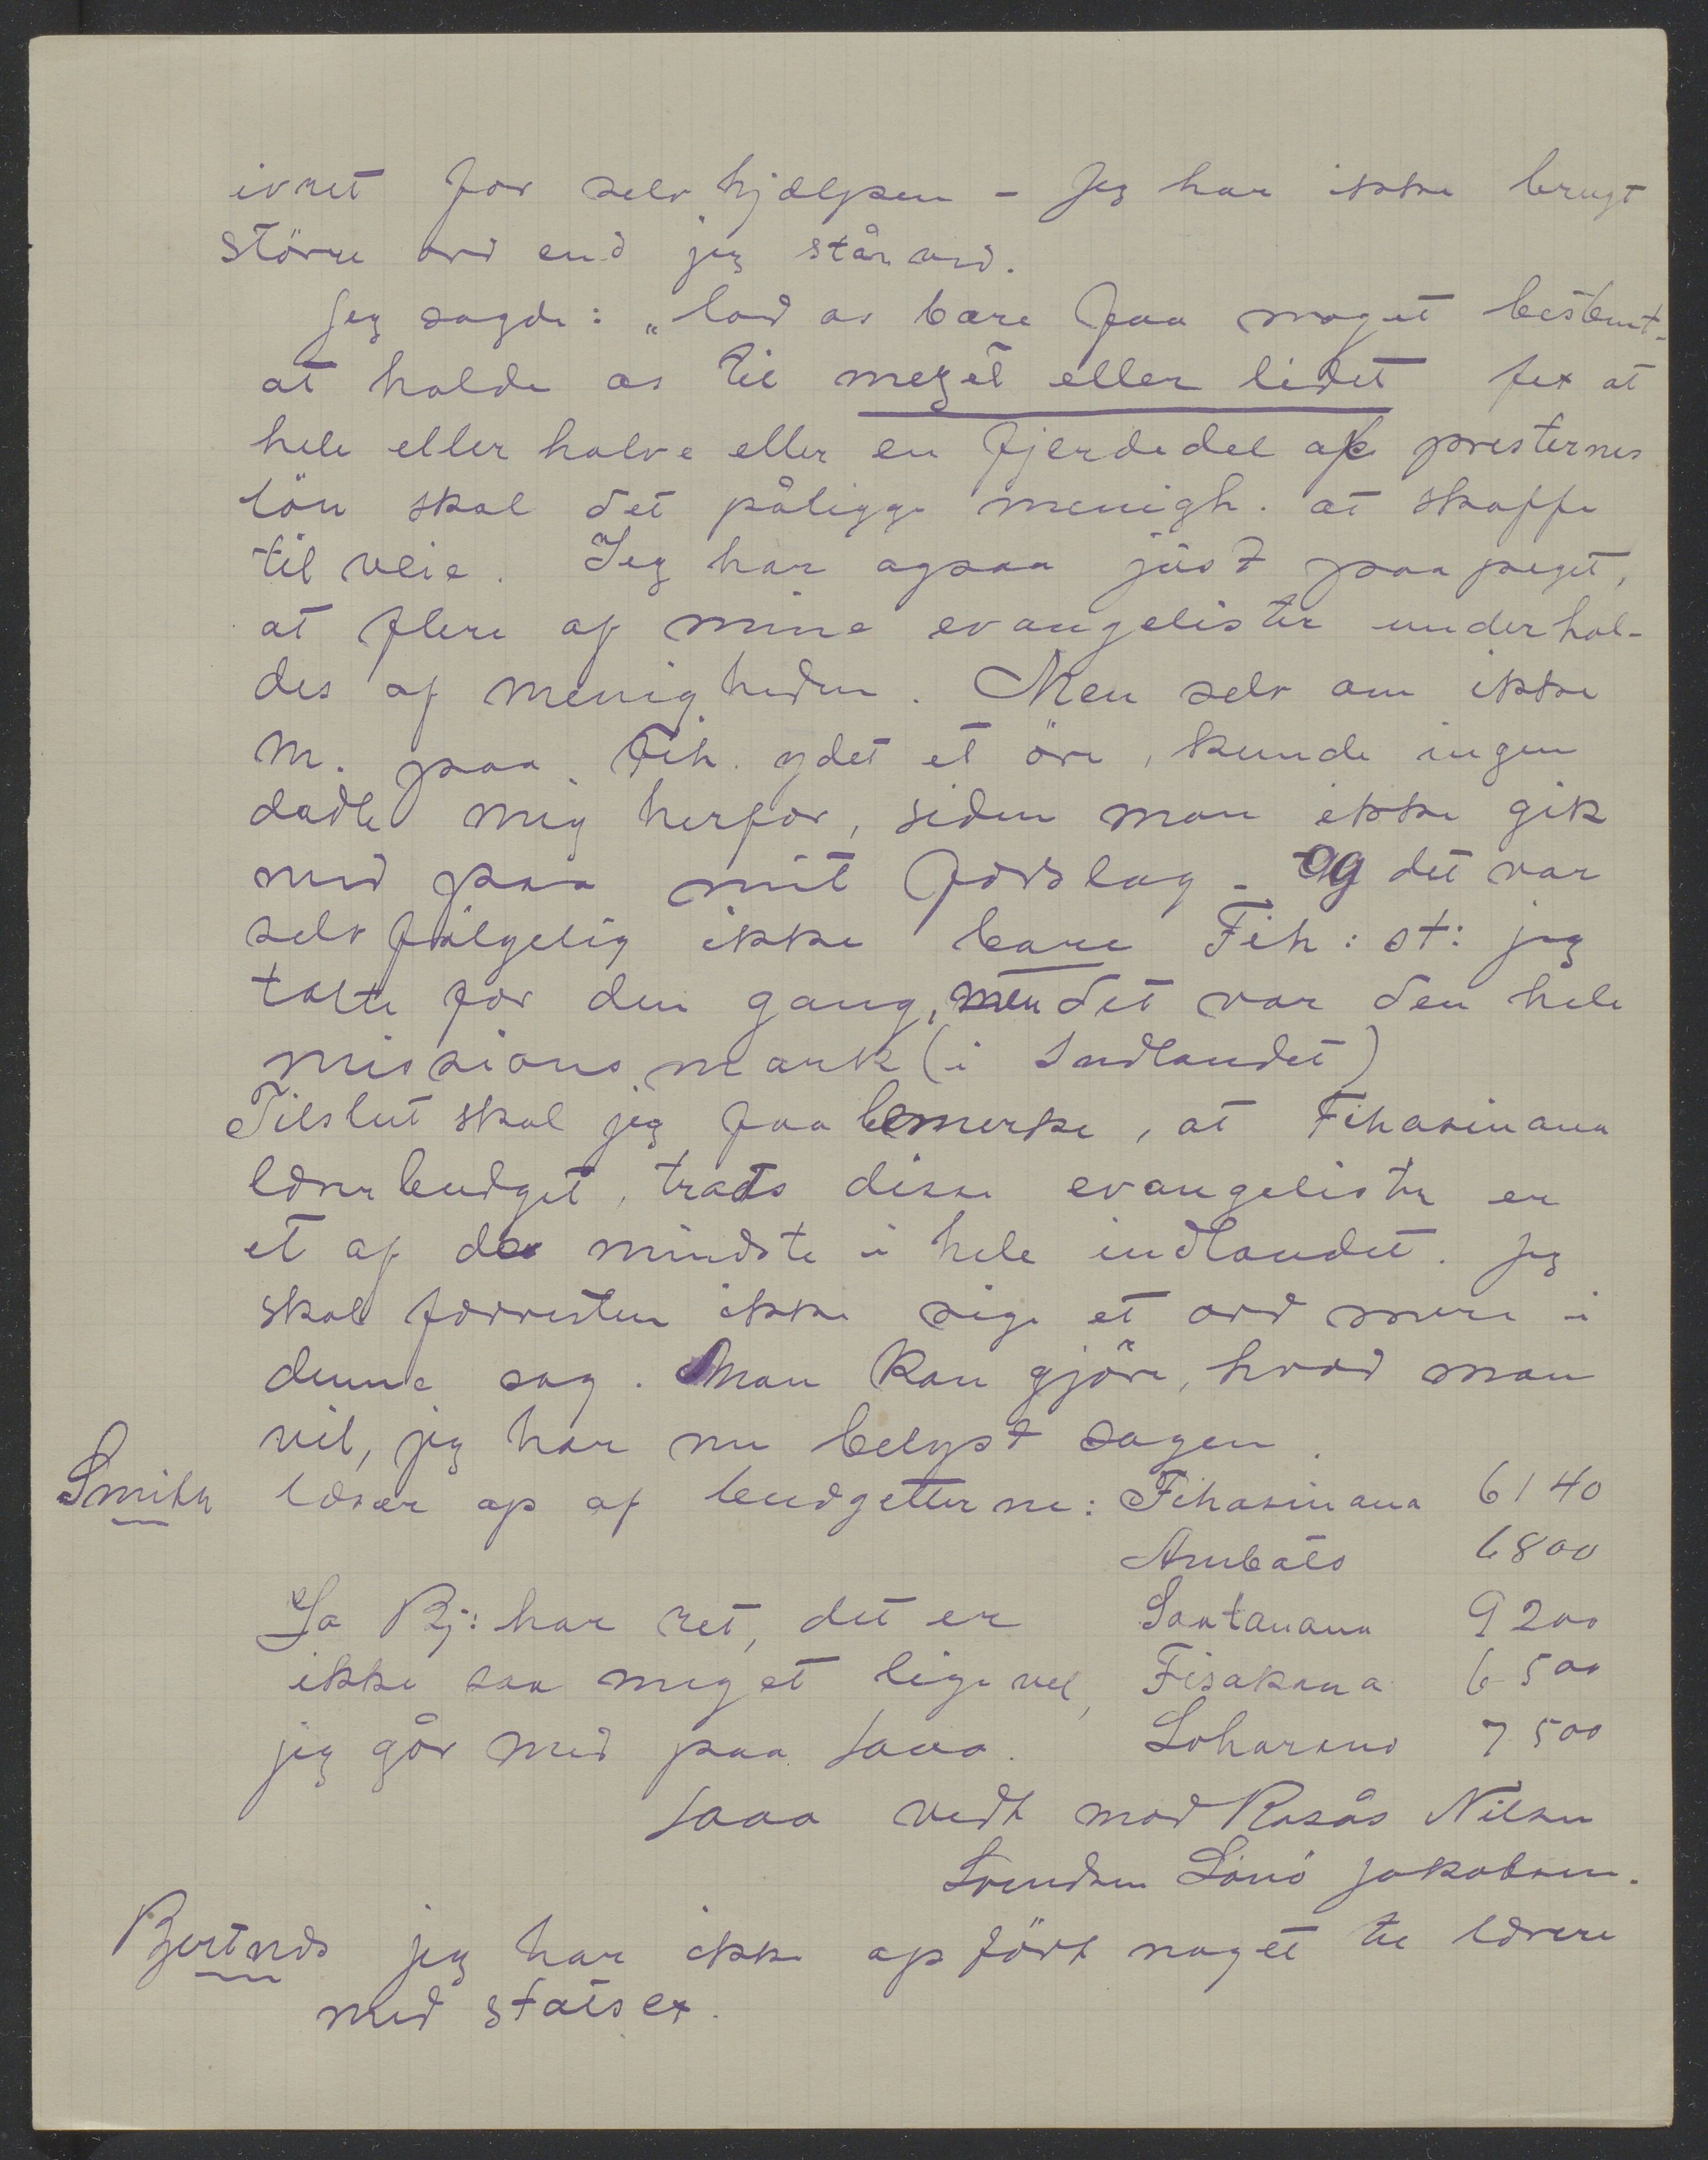 ivret for selvhjælpen - Jeg har ikke brugt
större ord end jeg står ved.
Jeg sagde: „lad os bare faa noget bestemt
at holde os til meget eller lidet fex at
hele eller halve eller en fjerdedel af presternes
lön skal det påligge menigh. at skaffe
til veie. Jeg har ogsaa just paapeget,
at flere af mine evangelister underhol-
des af menigheden. Men selv om ikke
m. paa Fih. ydet et öre, kunde ingen
dadle mig herfor, siden man ikke gik
med paa mit forslag - og det var
selvfølgelig ikke bare Fih: st: jeg
talte for den gang, men det var den hele
missionsmark (i Indlandet)
Tilslut skal jeg faa bemerke, at Fihasinana
lærerbudget, trods disse evangelister er
et af de mindste i hele indlandet. Jeg
skal forresten ikke sige et ord mere i
denne sag. Man kan gjöre, hvad man
vil, jeg har nu belyst sagen.
Smith læser op af budgetterne: Fihasinana 6140
Ambato 6800
Ja Bj: har ret, det er Soatanana 9200
ikke saa meget ligevel, Fisakana 6500
jeg går med paa 1000. Loharano 7500
1000 vedt mod Rosås Nilsen
Svendsen Lönö Jakobsen.
Bjertnæs jeg har ikke opfört noget til lærere
med statsex.